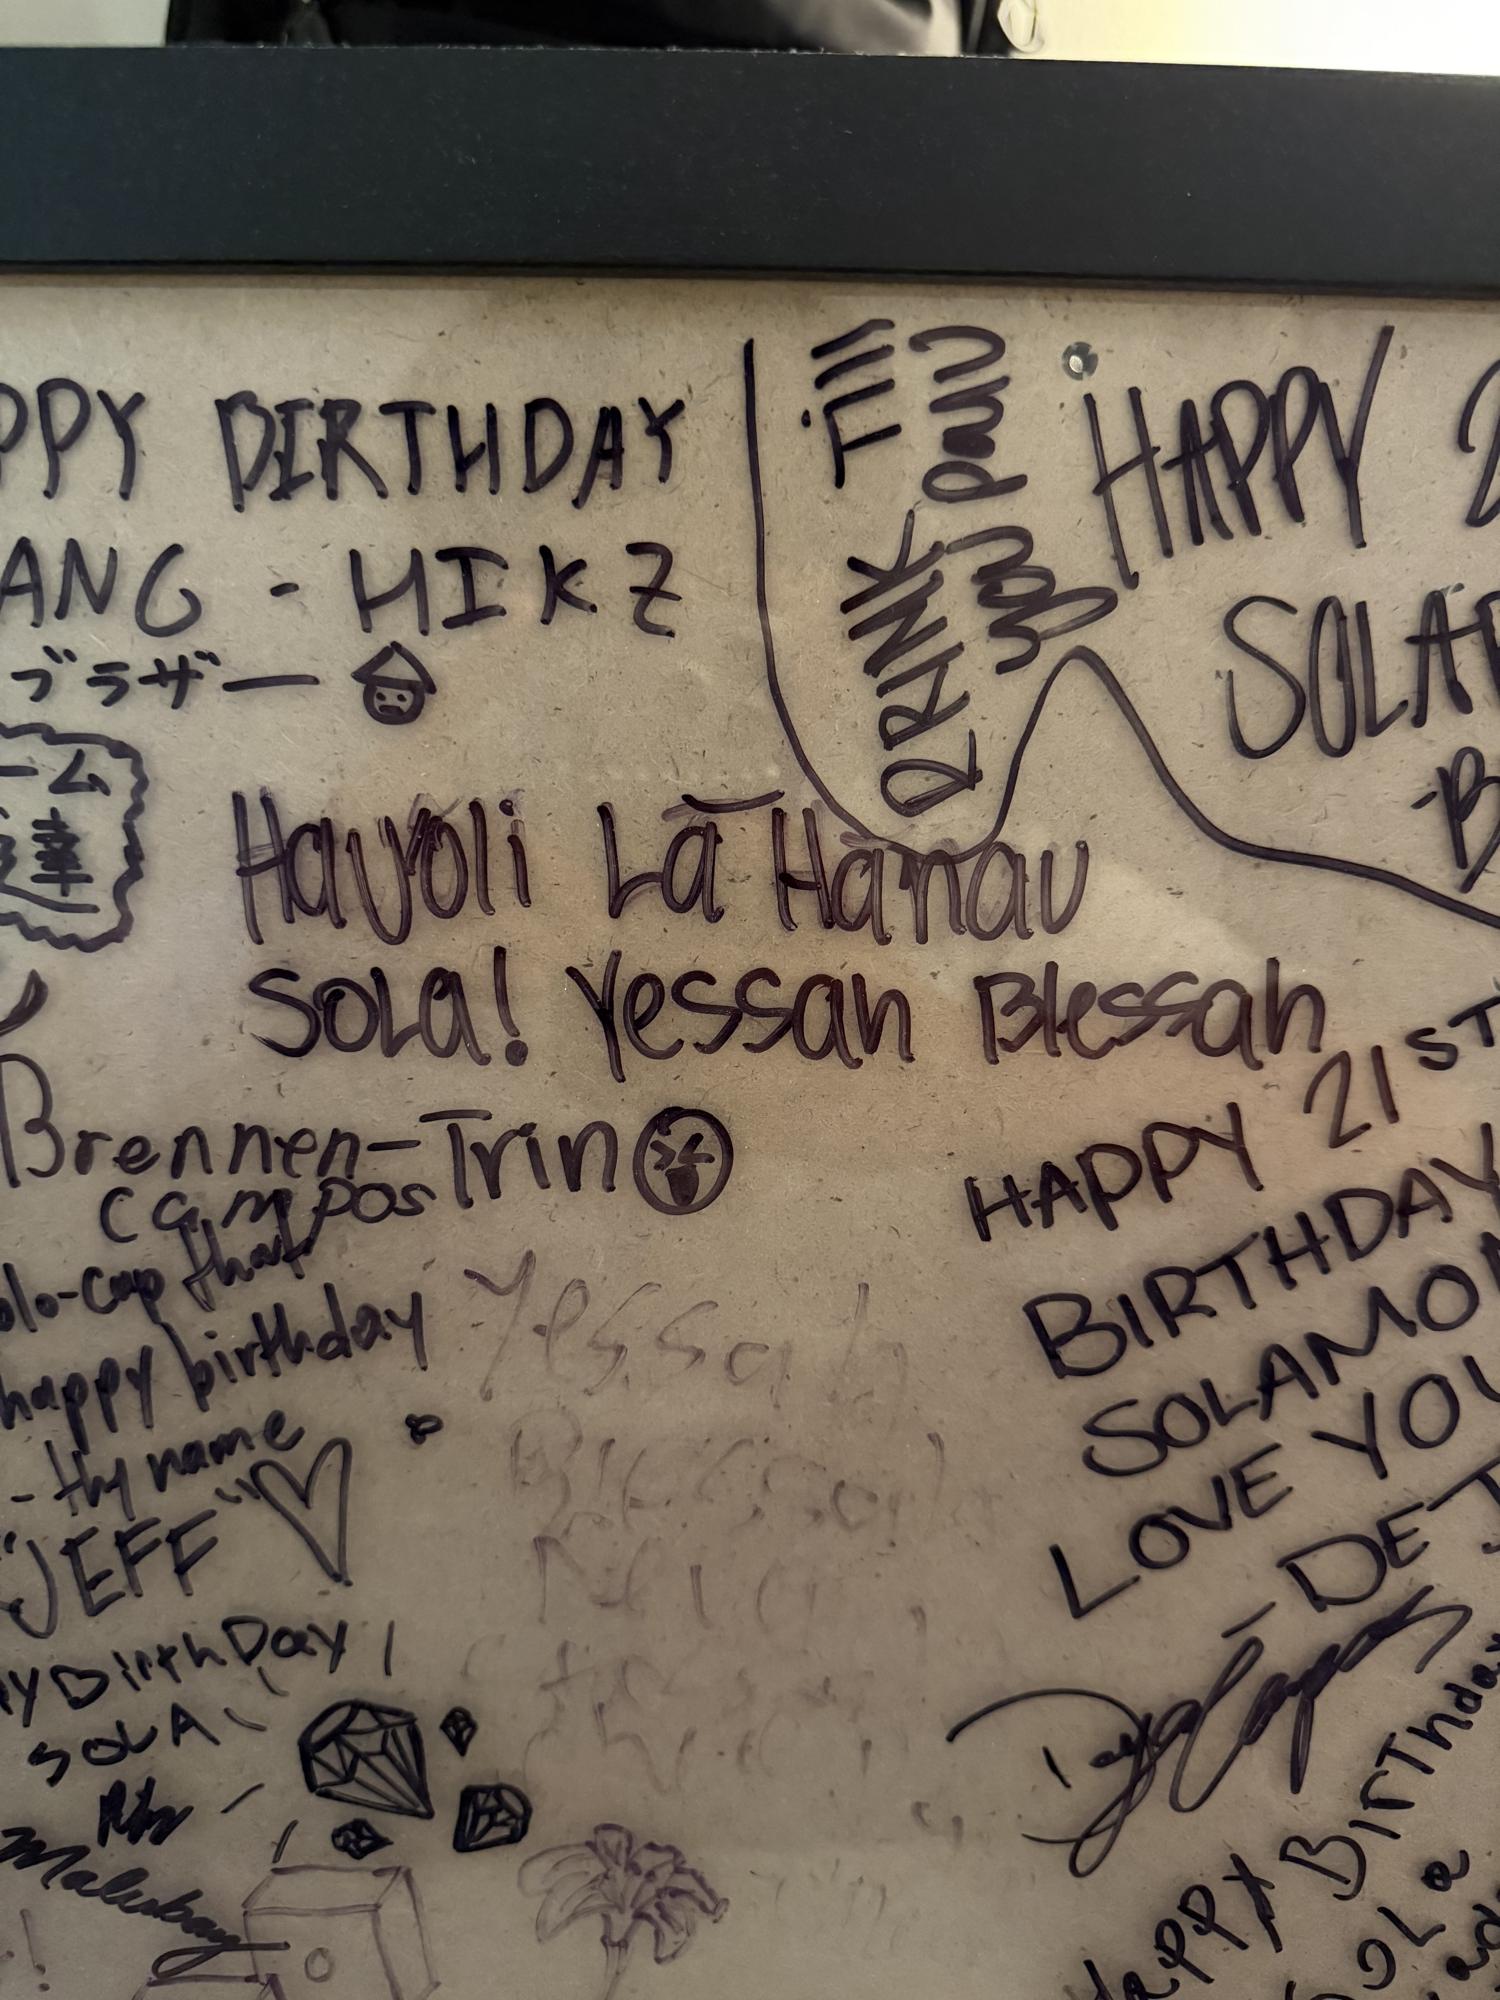 PPY BIRTHDAY
ANG - MIKZ
ブラザー
ーム
達
Till
DRINK
you puu
HAPPY 2
SOLA
-B
Hauʻoli Lā Hānau
SOLA! Yessah Blessah
Brennen-Trin
campos
olo-cup that
happy birthday
- thy name
"JEFF"
Yessah
Blessah
HAPPY 21ST
BIRTHDAY
SOLAMO
LOVE YOU
- DEJ
Y BirthDay
SOLA
Malubay
Happy Birthday
Sola